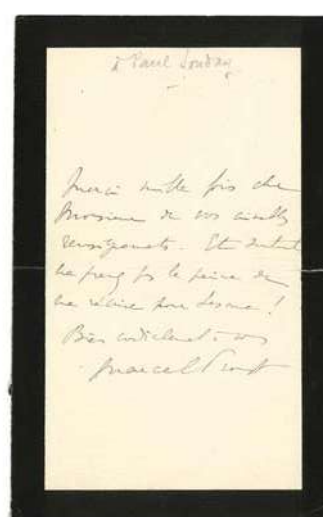 à Paul Souday
Merci mille fois cher
Monsieur de vos
renseignements. Et surtout
ne prenez pas la peine de
me récrire pour !
Bien cordialement à vous
Marcel Proust